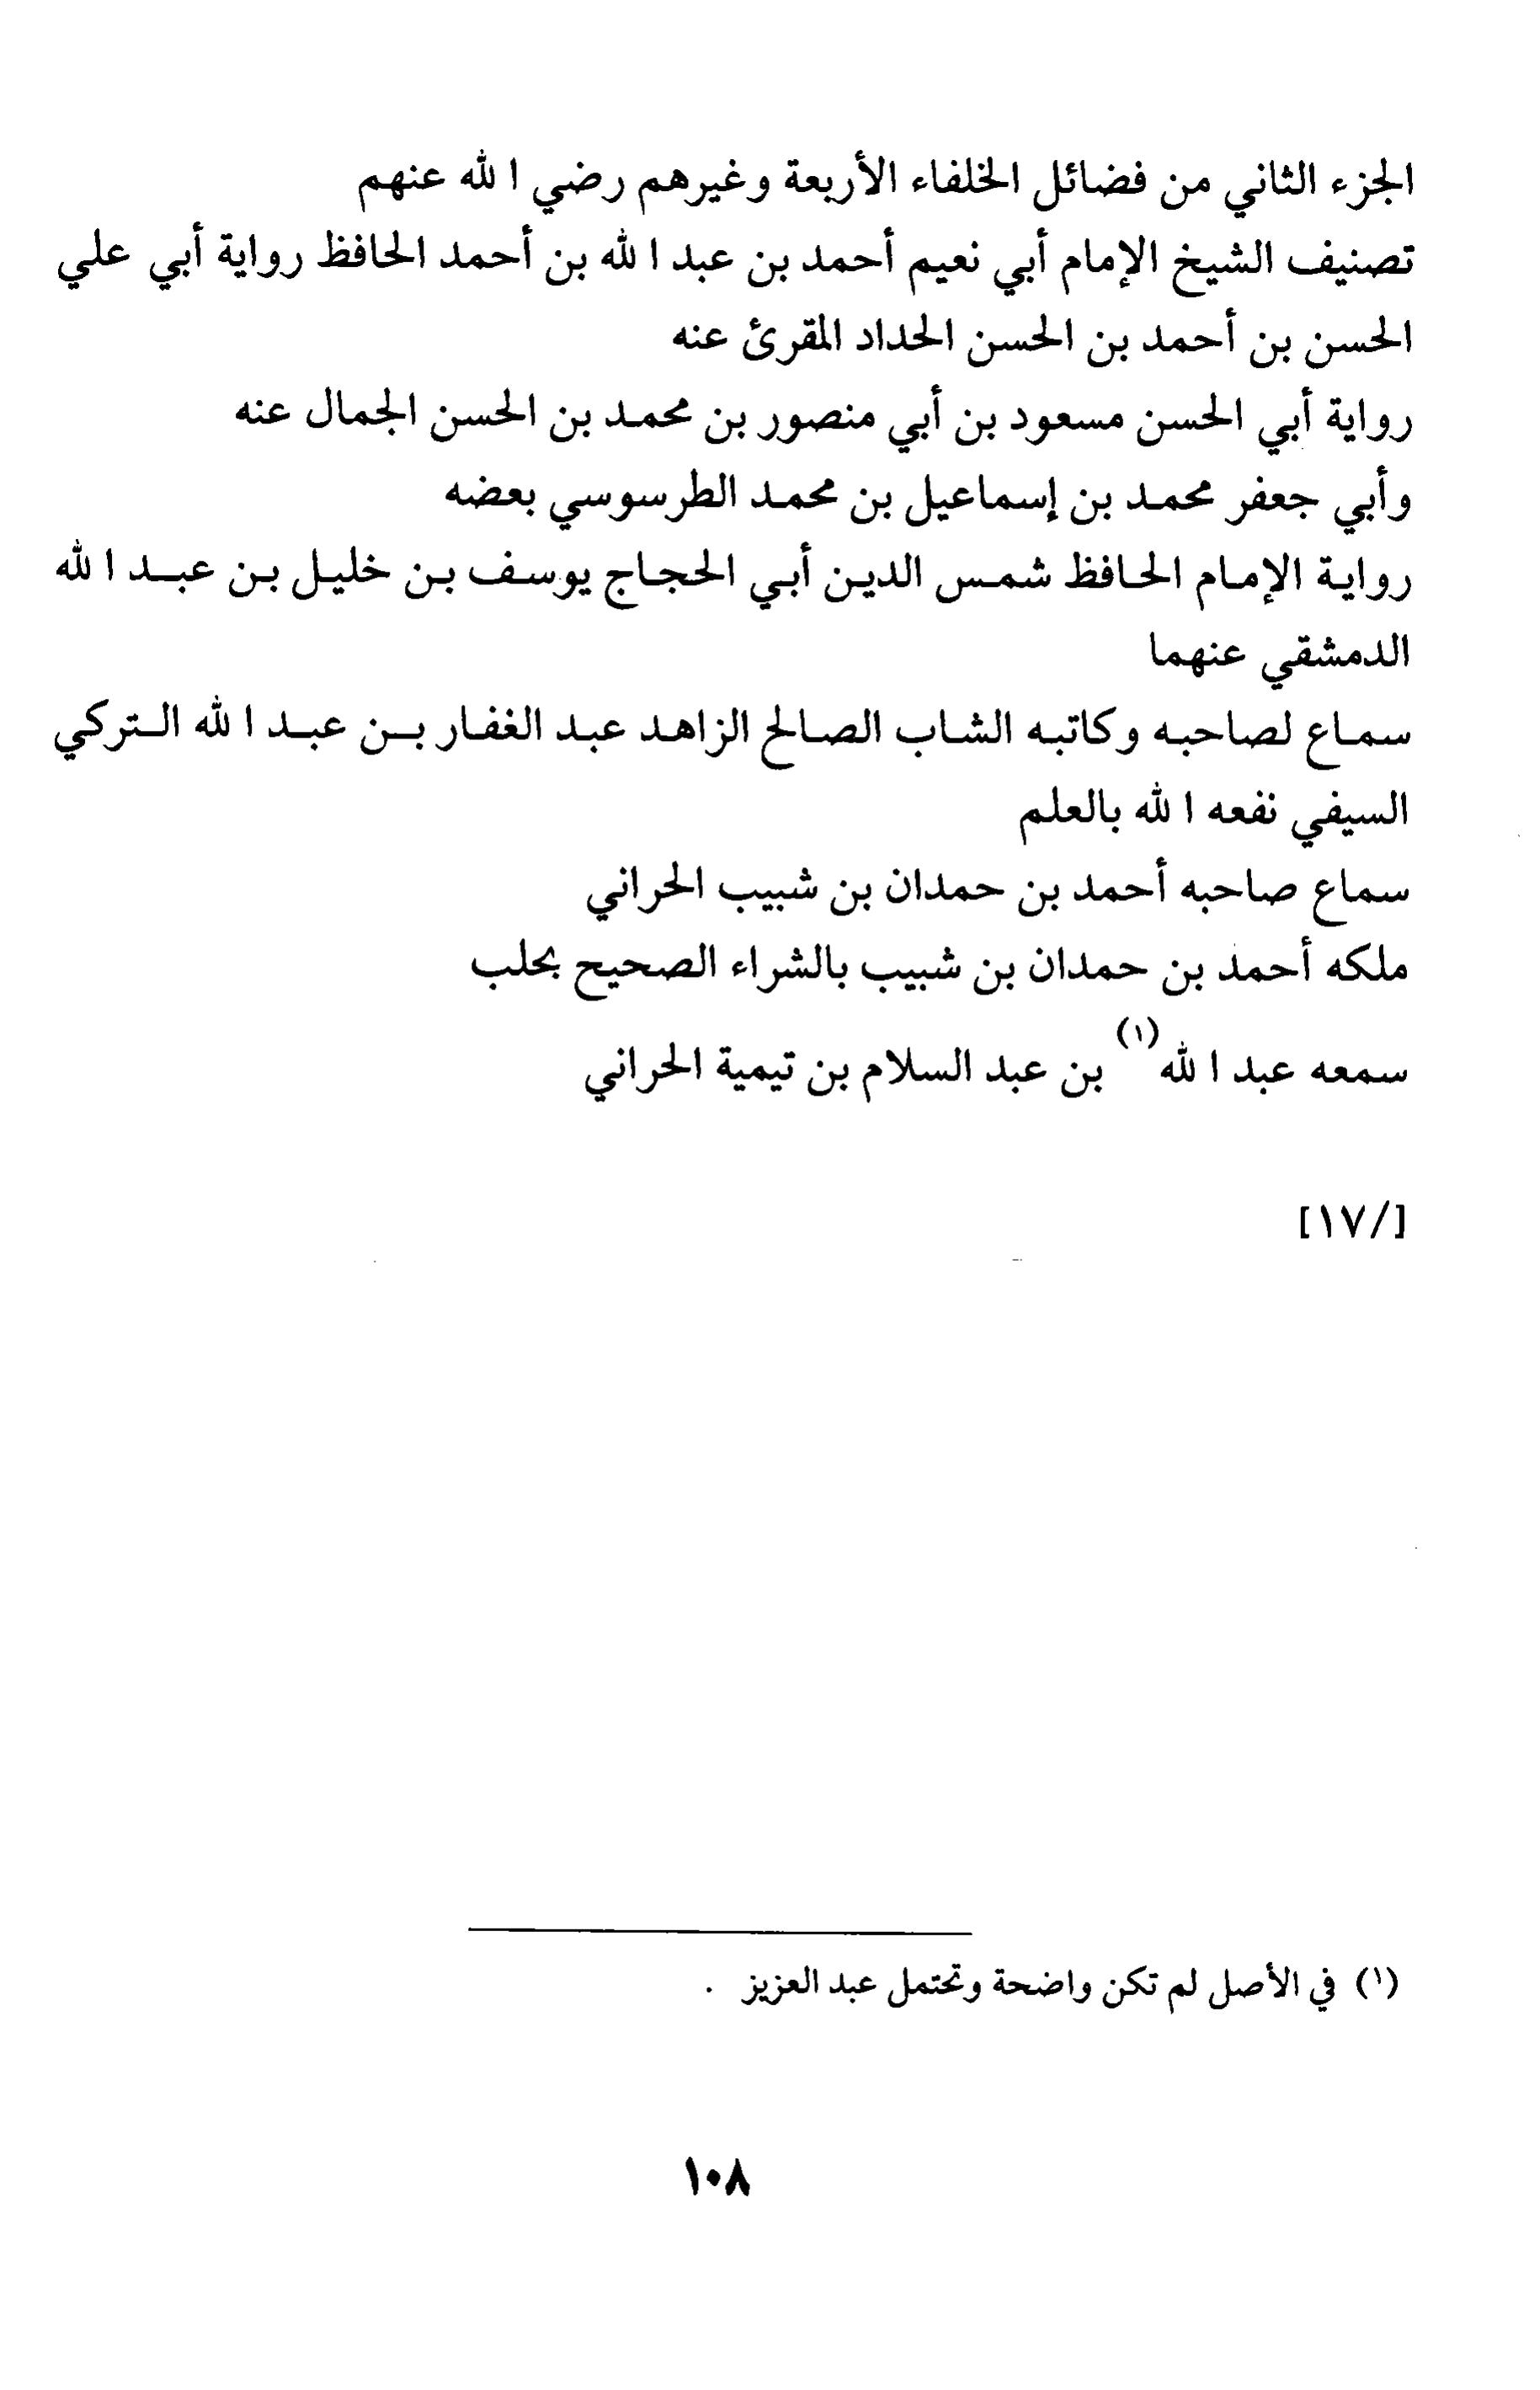 الجزء الثاني من فضائل الخلفاء الأربعة وغيرهم رضي الله عنهم
تصنيف الشيخ الإمام أبي نعيم أحمد بن عبد الله بن أحمد الحافظ رواية أبي علي
الحسن بن أحمد بن الحسن الحداد المقرئ عنه
رواية أبي الحسن مسعود بن أبي منصور بن محمد بن الحسن الجمال عنه
وأبي جعفر محمد بن إسماعيل بن محمد الطرسوسي بعضه
رواية الإمام الحافظ شمس الدين أبي الحجاج يوسف بن خليل بن عبد الله
الدمشقي عنهما
سماع لصاحبه وكاتبه الشاب الصالح الزاهد عبد الغفار بن عبد الله التركي
السيفي نفعه الله بالعلم
سماع صاحبه أحمد بن حمدان بن شبيب الحراني
ملكه أحمد بن حمدان بن شبيب بالشراء الصحيح بحلب
سمعه عبد الله(١) بن عبد السلام بن تيمية الحراني
[/١٧]
(١) في الأصل لم تكن واضحة وتحتمل عبد العزيز .
١٠٨